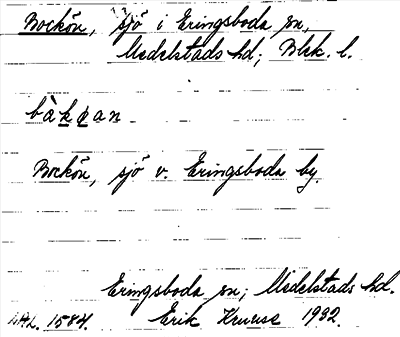 Bockön, sjö i Eringsboda sn,
Medelstads hd; Blek. l.
bàkøan
Bockön, sjö v. Eringsboda by.
Eringsboda sn; Medelstads hd.
1584. Erik 1932.